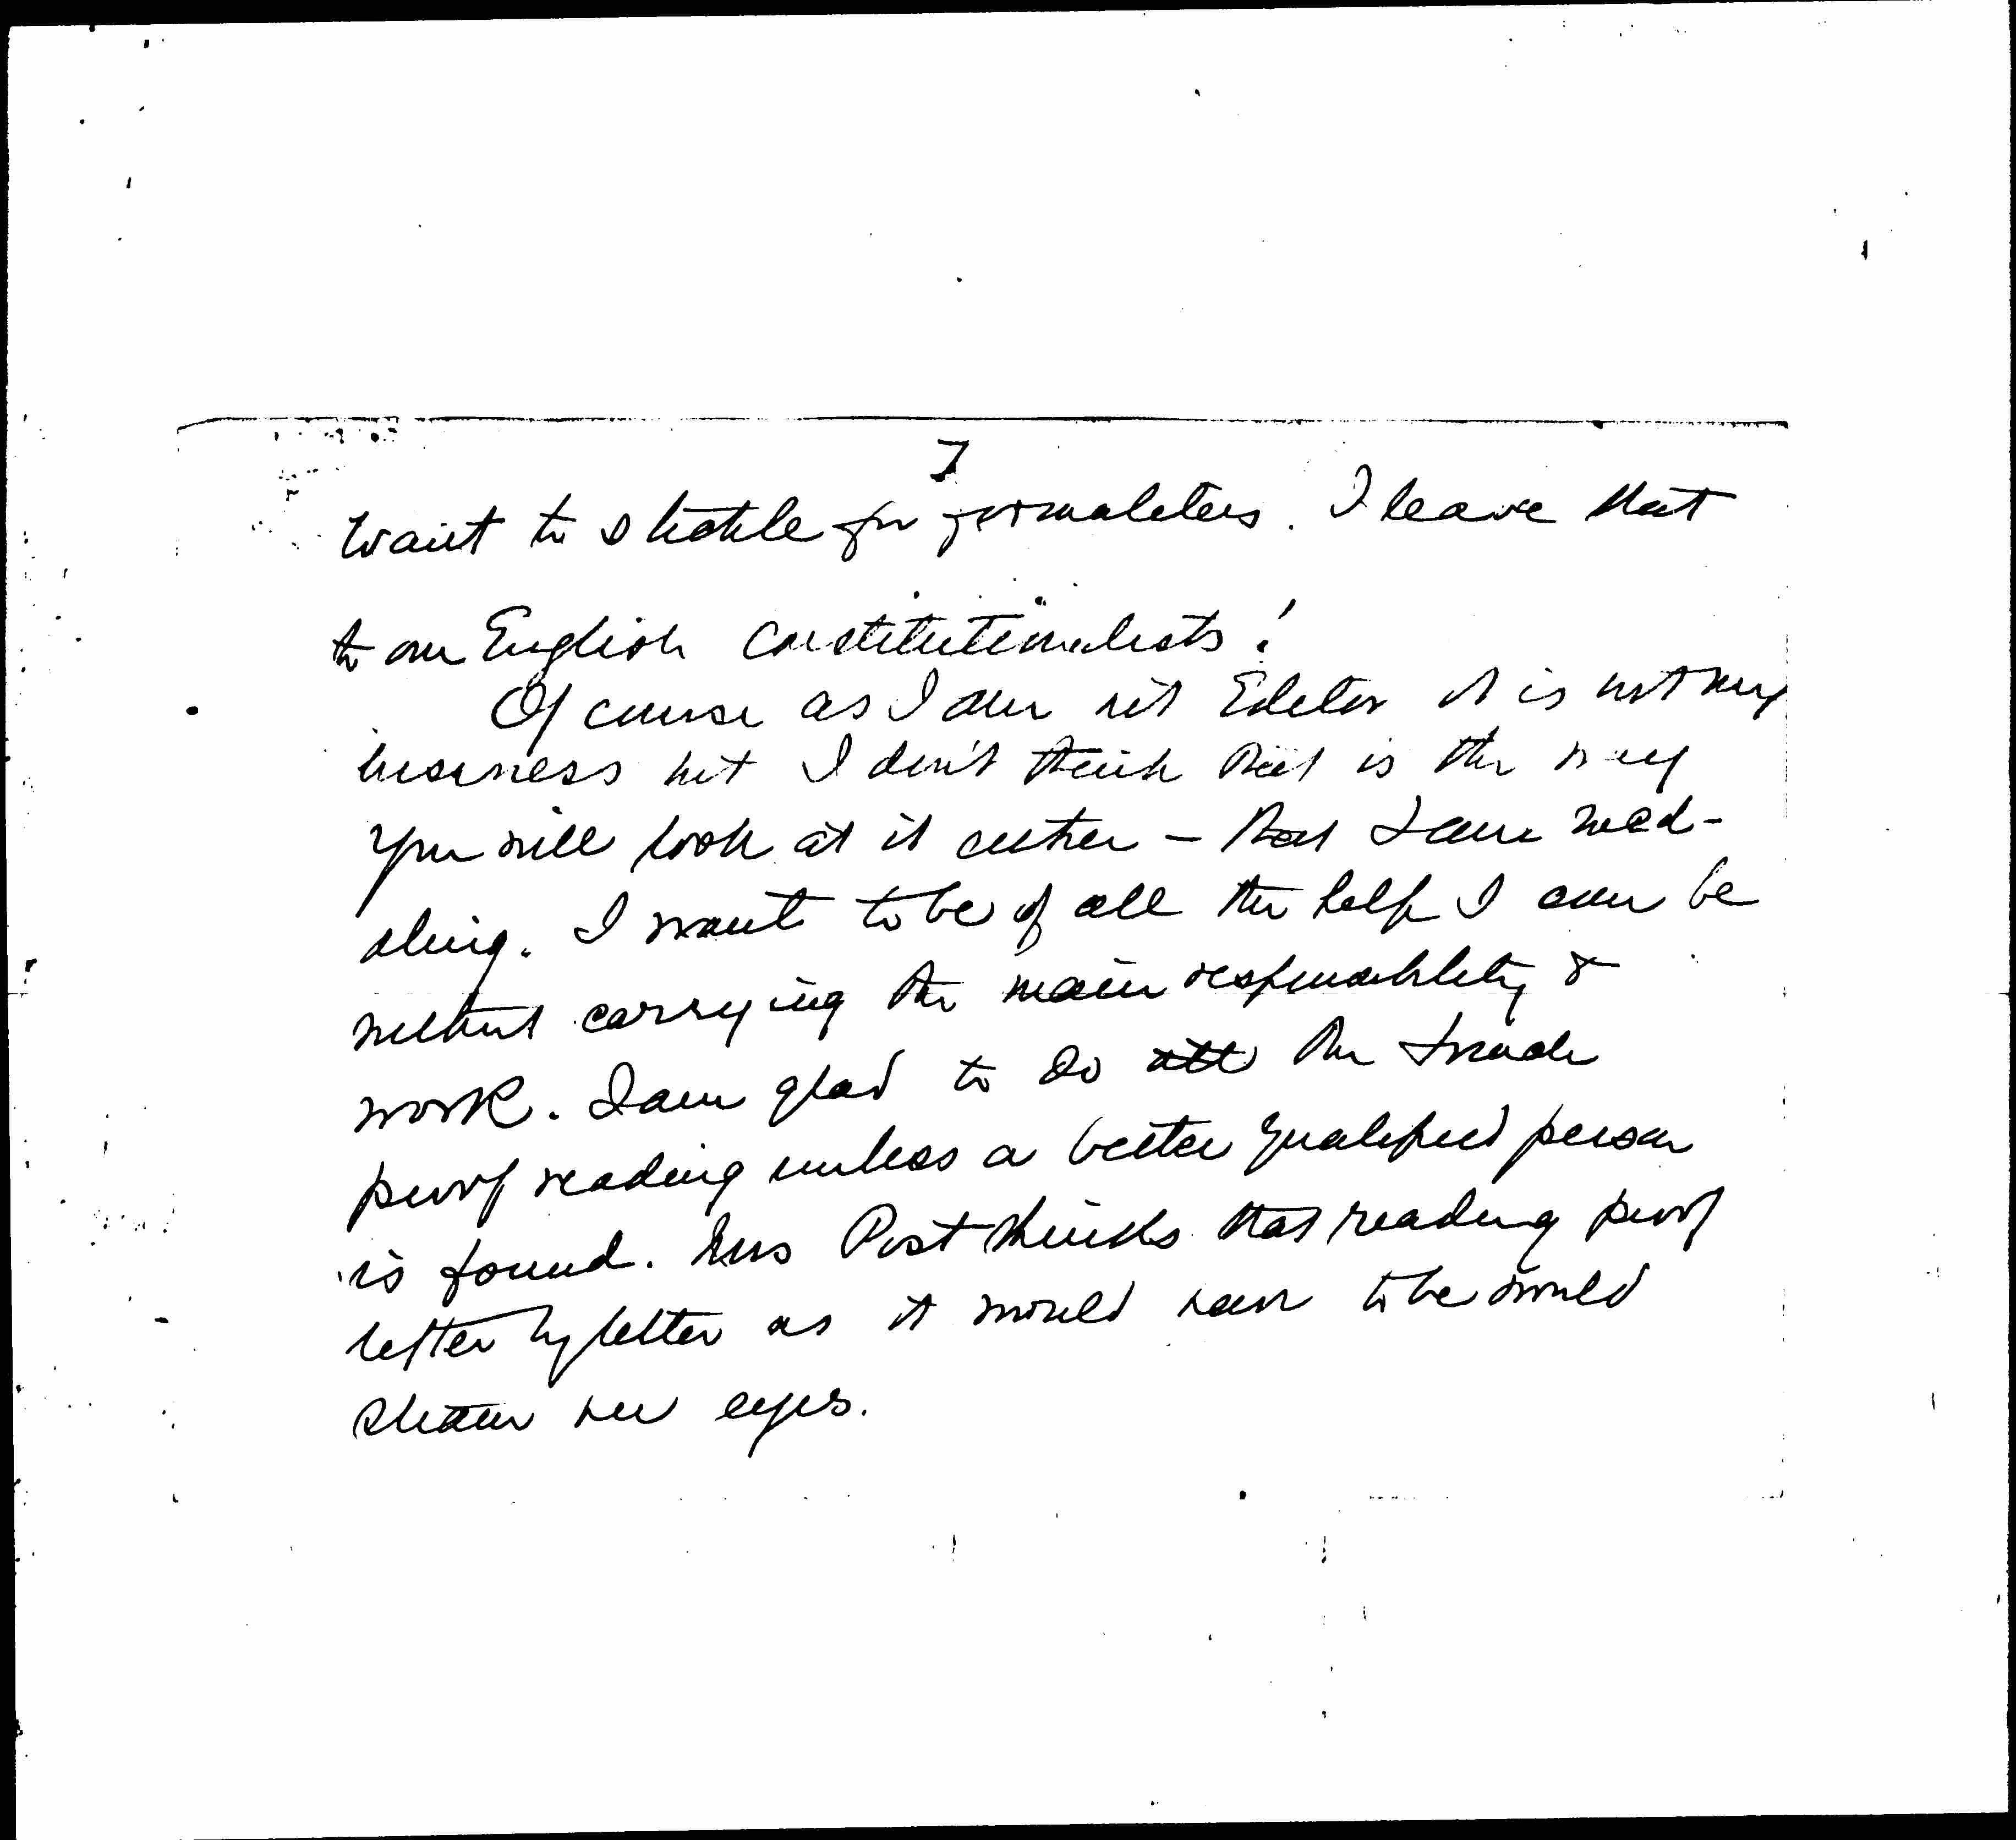 7
want to stickle for formalities. I leave that
to our English Constitutionalists!
Of course as I am not Editor it is not my
business but I don't think that is the way
you will look at it either – that I am med-
dling. I want to be of all the help I can be
without carrying the main responsibility &
work. I am glad to do all the
proof reading unless a better qualified person
is found. Mrs Post thinks that reading proof
letter by letter as it would have to be would
strain her eyes.